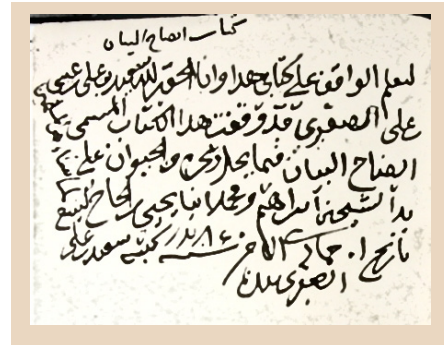 كتاب ايضاح البيان
ليعلم الواقف على كتابي هذا وانا الحقير لله سعيد بن علي بن عيسى بن
علي الصقري قد وقفت هذا الكتاب المسمى
ايضاح البيان فيما يحل ويحرم من الحيوان على يد
الشيخين ابراهيم ومحمد ابنا يحيى الحاج
تاريخ ١٠ جمادى الاخر سنة كتبه سعيد بن علي
الصقري بيده